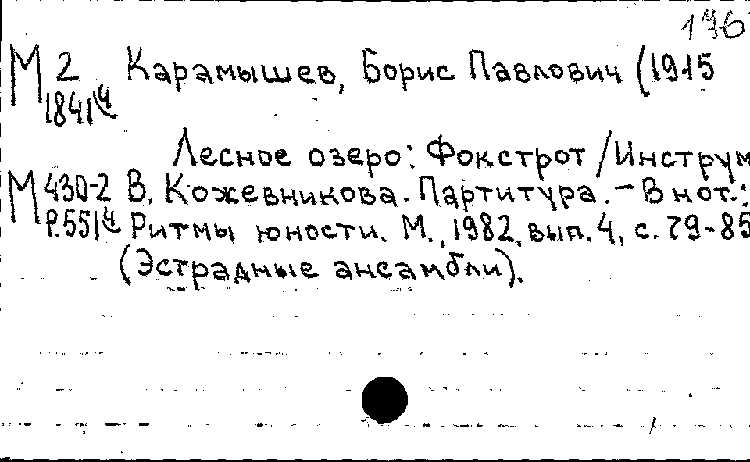 196
М 2 Карамышев, Борис Павлович (1915
1841
Лесное озеро: Фокстрот /Инструм
М 430-2 В. Кожевникова. Партитура. - В нот.:
Р.551 Ритмы юности. М., 1982, вып. 4, с. 79-85
(Эстрадные ансамбли).